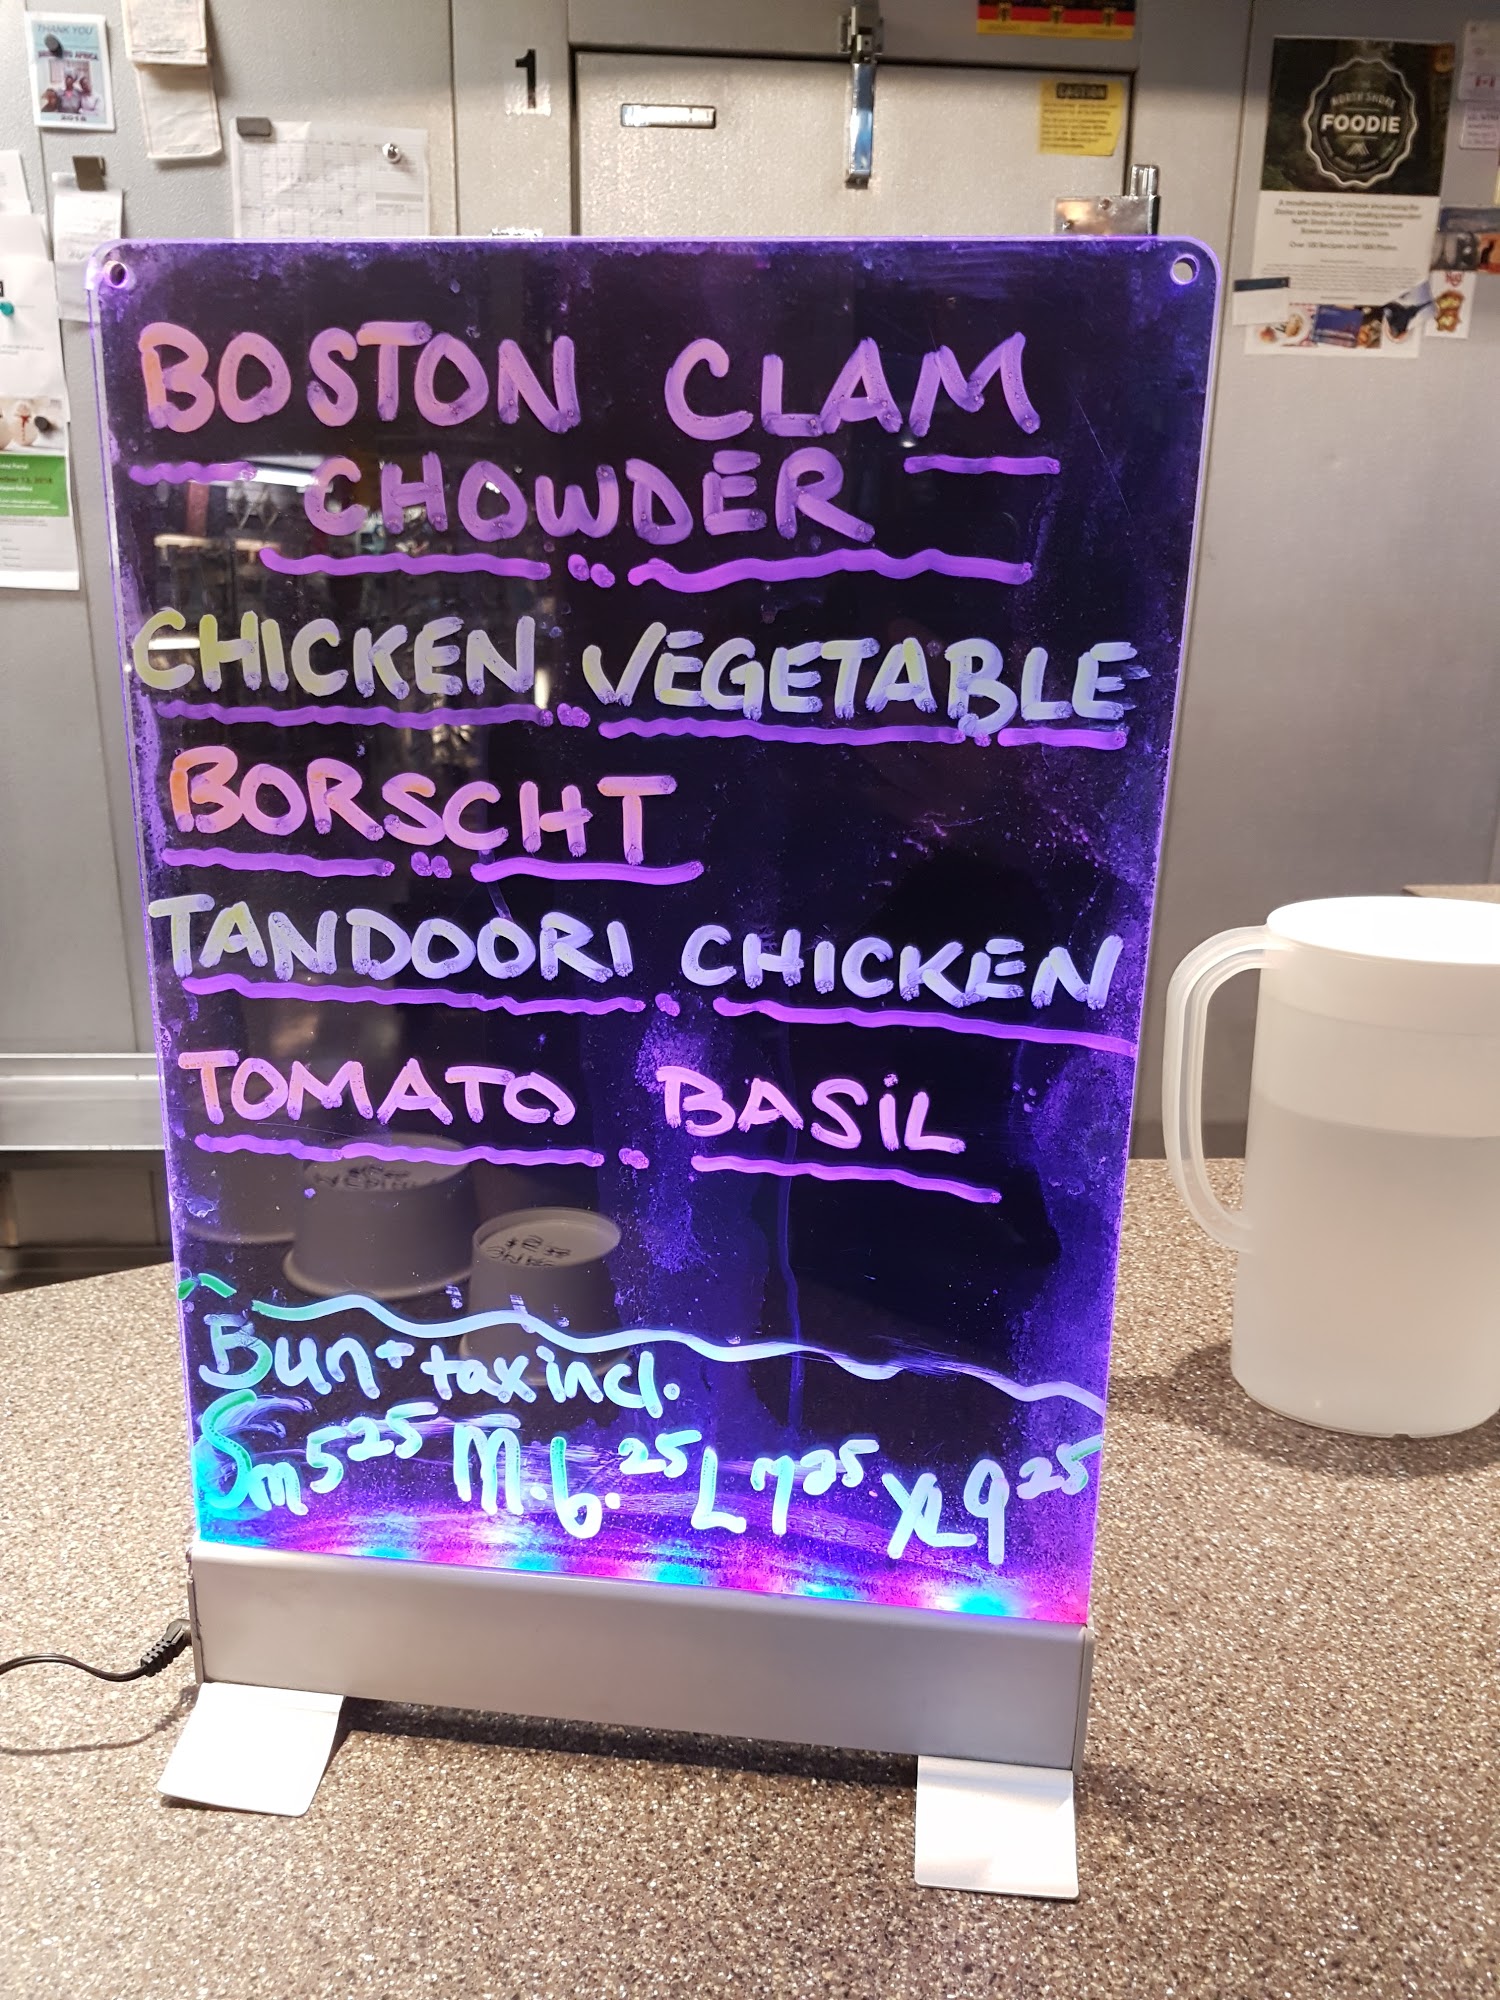 THANK YOU
AFRICA
2018
1
CAUTION
NORTH SHORE
FOODIE
BOSTON CLAM
CHOWDER
CHICKEN VEGETABLE
BORSCHT
TANDOORI CHICKEN
TOMATO BASiL
Bun + tax incl.
Sm 5 25 M. 6. 25 L 7 25 XL 9 25